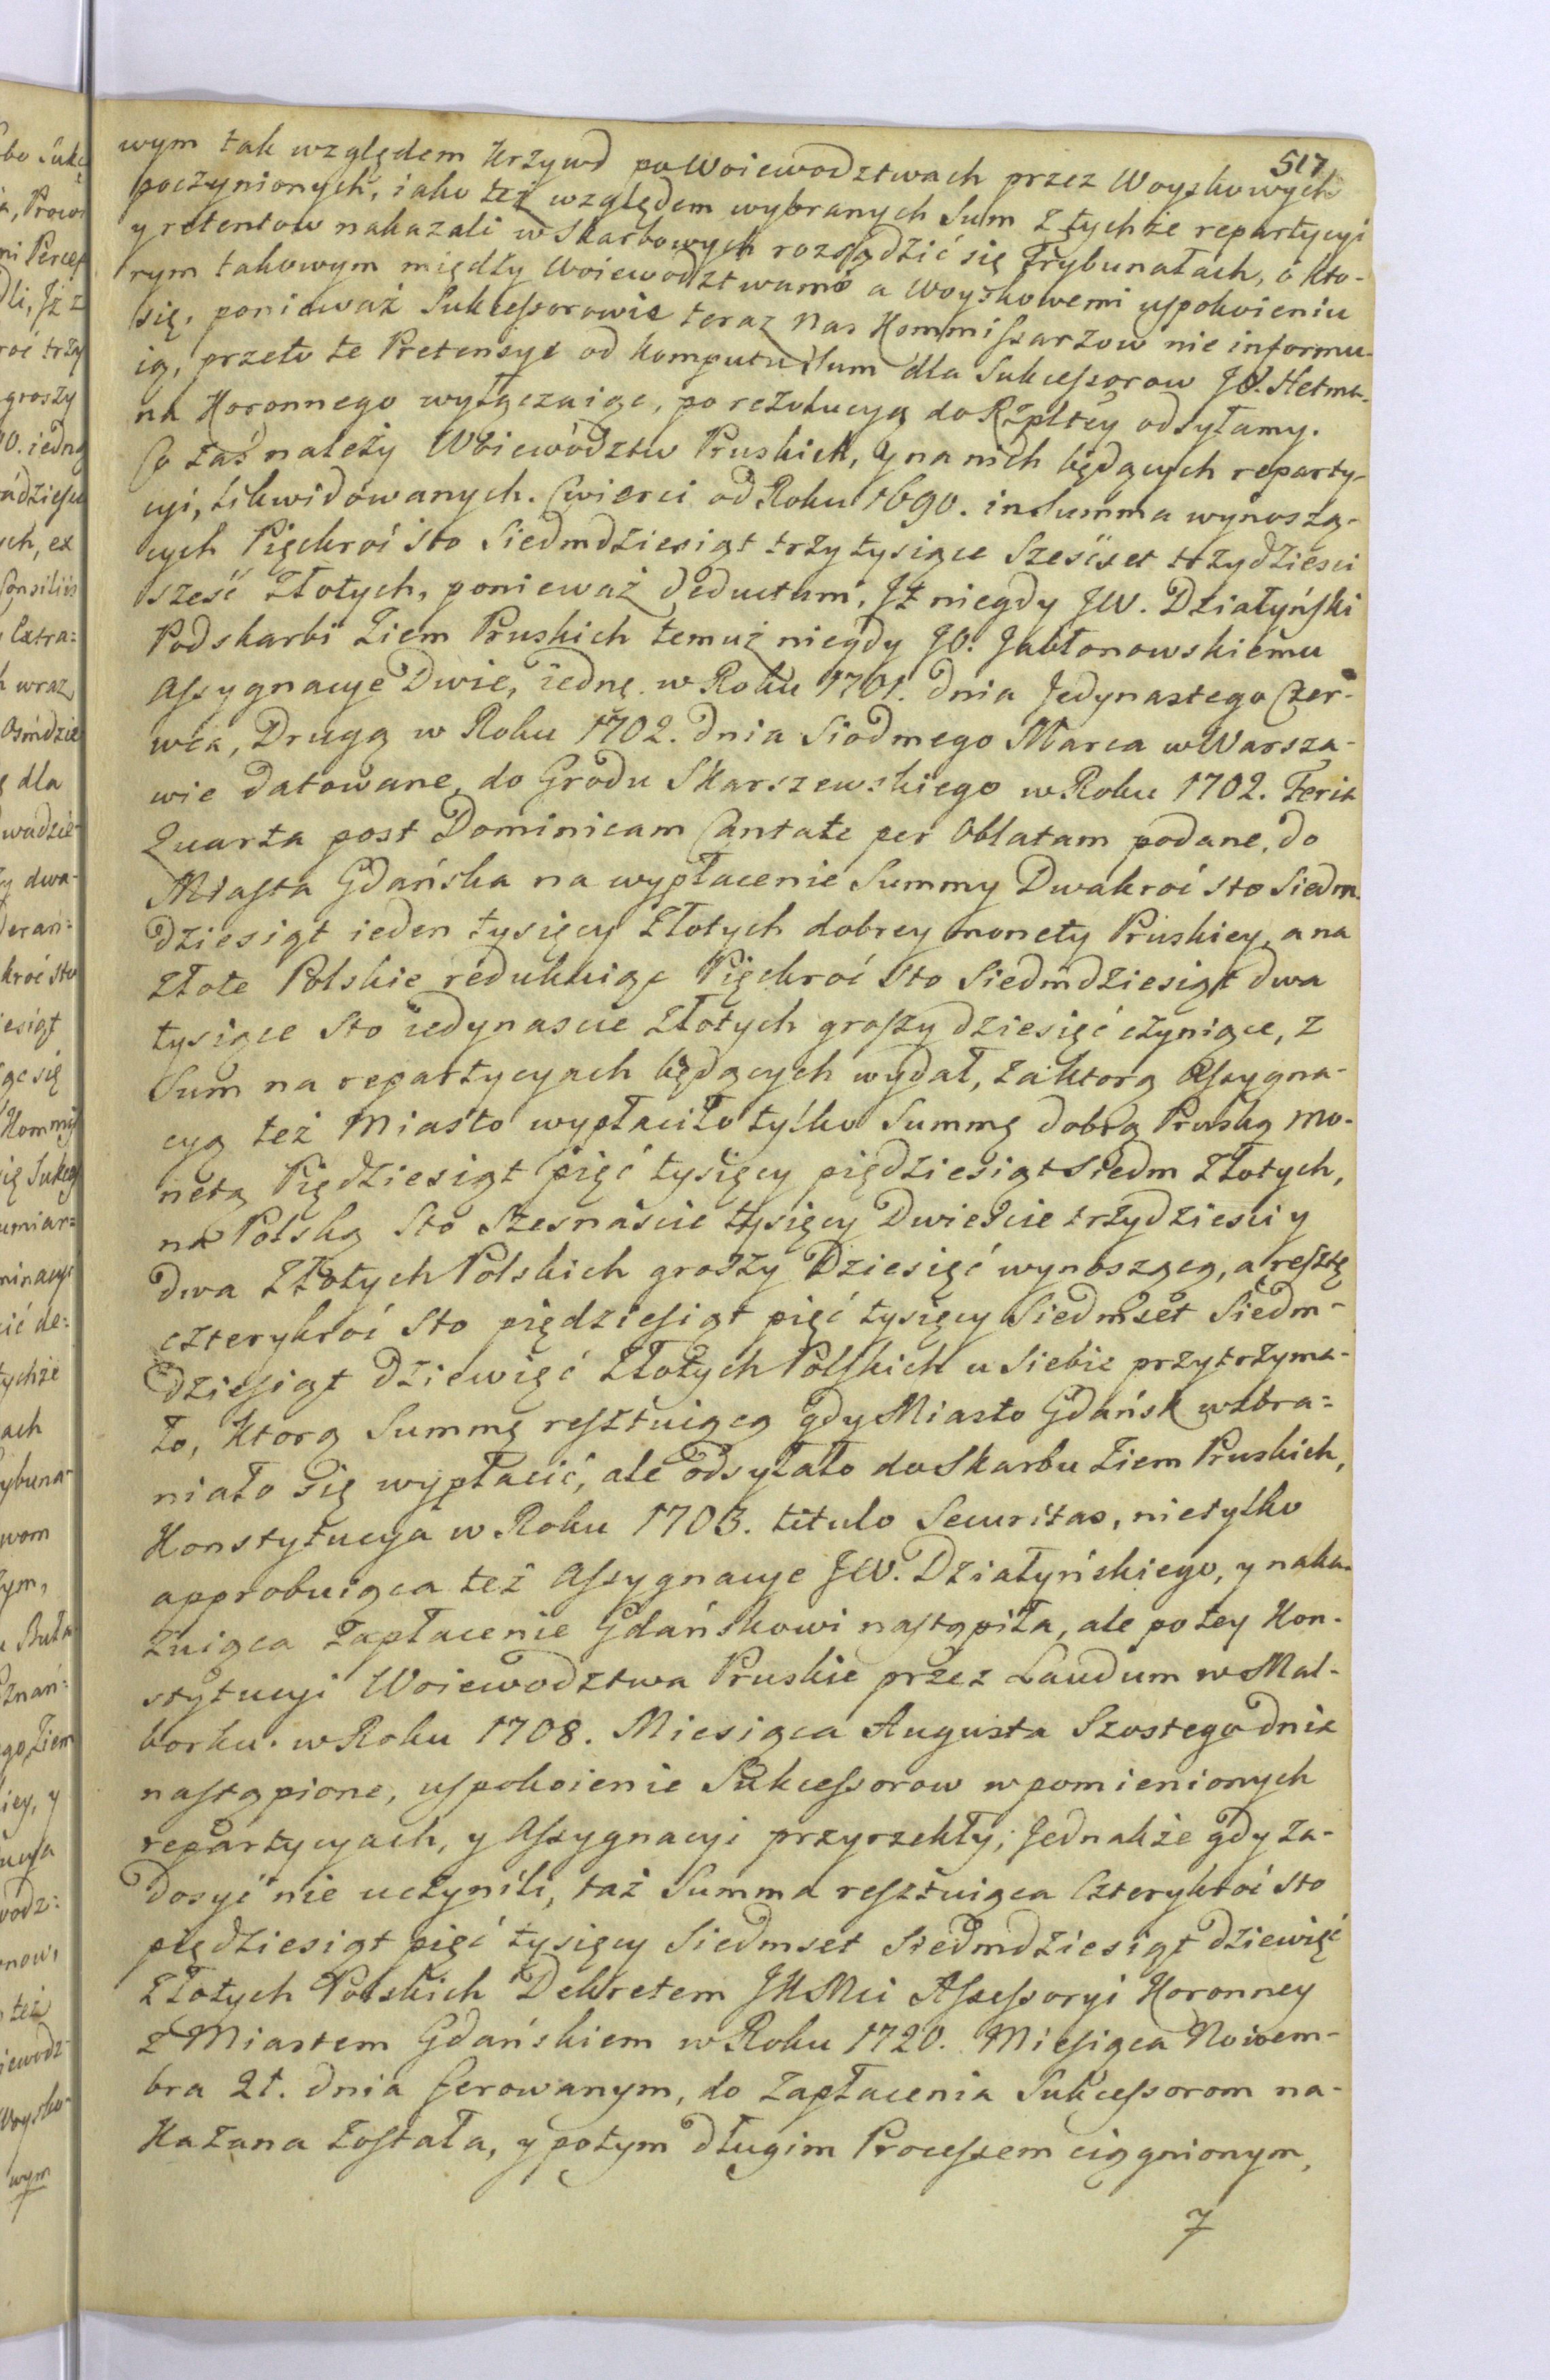 517
wym tak względem Krzywd po Woiewodztwach przez Woyskowych
poczynionych, iako też względem wybranych Sum z tychże repartycyi
y retentow nakazali w Skarbowych rozsądzić się Trybunałach, o kto-
rym takowym między Woiewodztwami a Woyskowemi uspokoieniu
się, ponieważ Sukcessorowie teraz Nas Kommissarzow nie informu-
ią, przeto te Pretensye od Komputu Sum dla Sukcessorow JO. Hetma-
na Koronnego wyłączaiąc, po rezolucyą do Rzpltey odsyłamy.
Co zaś należy Woiewództw Pruskich, y na nich będących reparty-
cyi, likwidowanych Cwierci od Roku 1690. in Summa wynoszą-
cych Pięckroć sto Siedmdziesiąt trzy tysiące Sześćset trzydzieści
sześć Złotych, ponieważ deductum, Jż niegdy JW. Działyński
Podskarbi Ziem Pruskich temuż niegdy JO. Jabłonowskiemu
Assygnacye Dwie, iednę w Roku 1701. dnia Jedynastego Czer-
wca, Drugą w Roku 1702. dnia Siodmego Marca w Warsza-
wie datowane, do Grodu Skarszewskiego w Roku 1702. Feria
Quarta post Dominicam Cantate per Oblatam podane, do
Miasta Gdańska na wypłacenie Summy Dwakroć sto Siedm-
dziesiąt ieden tysięcy Złotych dobrey monety Pruskiey, a na
Złote Polskie redukuiąc Pięckroć sto Siedmdziesiąt dwa
tysiące sto iedynascie Złotych groszy dziesięć czyniące, z
Sum na repartycyach będących wydał, za ktorą Assygna-
cyą też Miasto wypłaciło tylko Summę dobrą Pruską mo-
netą Piędziesiąt pięć tysięcy piędziesiąt siedm Złotych,
na Polską Sto Szesnaście tysięcy Dwieście trzydzieści y
dwa Złotych Polskich groszy Dziesięć wynoszącą, a resztę
czterykroć Sto piędziesiąt pięć tysięcy Siedmset Siedm-
dziesiąt dziewięć Złotych Polskich u Siebie przytrzyma-
ło, Ktorą Summę resztuiącą gdy Miasto Gdańsk wzbra-
niało się wypłacić, ale odsyłało do Skarbu Ziem Pruskich,
Konstytucya w Roku 1703. titulo Securitas, nietylko
approbuiąca też Assygnacye JW. Działyńskiego, y naka-
zuiąca zapłacenie Gdańskowi nastąpiła, ale po tey Kon-
stytucyi Woiewodztwa Pruskie przez Laudum w Mal-
borku w Roku 1708. Miesiąca Augusta Szostego dnia
nastąpione, uspokoienie Sukcessorow w pomienionych
repartycyach, y Assygnacyi przyrzekły; Jednakże gdy za-
dosyć nie uczynili, taż Summa resztuiąca Czterykroć sto
pięćdziesiąt pięć tysięcy Siedmset Siedmdziesiąt dziewięć
Złotych Polskich Dekretem JKMci Assessoryi Koronney
z Miastem Gdańskiem w Roku 1720. Miesiąca Nowem-
bra 21. dnia ferowanym, do zapłacenia Sukcessorom na-
Kazana została, y potym długim Processem ciągnionym,
7